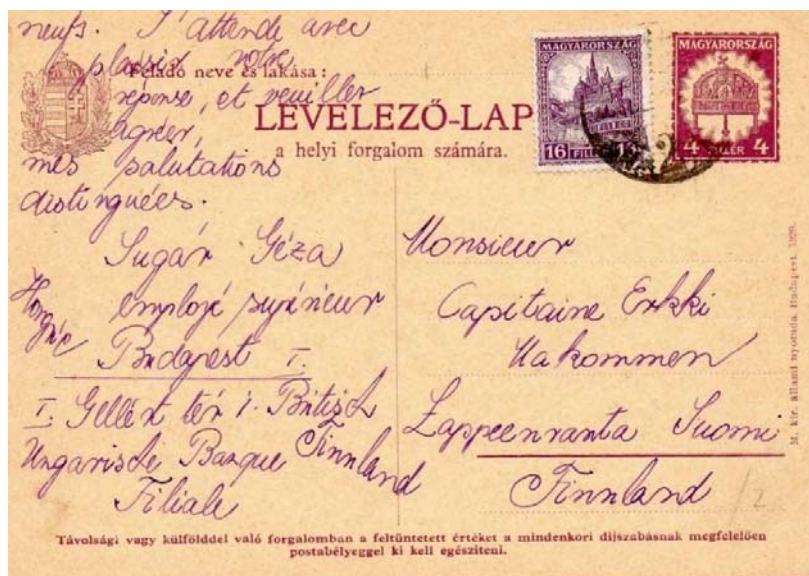 neufs. J'attends avec
plaisir votre
Feladó neve és lakása:
réponse, et veuiller
agréer,
LEVELEZŐ-LAP
a helyi forgalom számára.
mes salutations
distinguées.
MAGYARORSZÁG
16 FILLÉR 16
MAGYARORSZÁG
4 FILLÉR 4
Sugár Géza
employé supérieur
Hongrie
Budapest I.
I. Gellért tér 1. Britisch
Ungarische Banque
Filiale
Finnland
Monsieur
Capitaine Erkki
Lappeenranta Suomi
Finnland
M. kir. állami nyomda. Budapest. 1929.
Távolsági vagy külfölddel való forgalomban a feltüntetett értéket a mindenkori díjszabásnak megfelelően
postabélyeggel ki kell egésziteni.